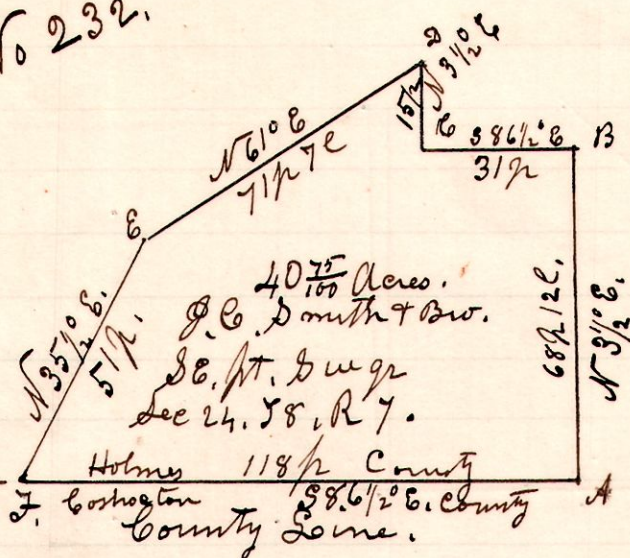 No 232.
D
N 3 1/2° E
15 1/2
N 61° E
71p 7l
C
S 86 1/2° E
31p
B
E.
N 35 1/2° E.
51p.
40 75/100 Acres.
J. C. Smith & Bro.
SE. pt. Sw qr
Sec 24. T8, R 7.
68p 12l.
N 3 1/2° E.
Holmes 118p County
F. Coshocton S 86 1/2° E. County A
County Line.